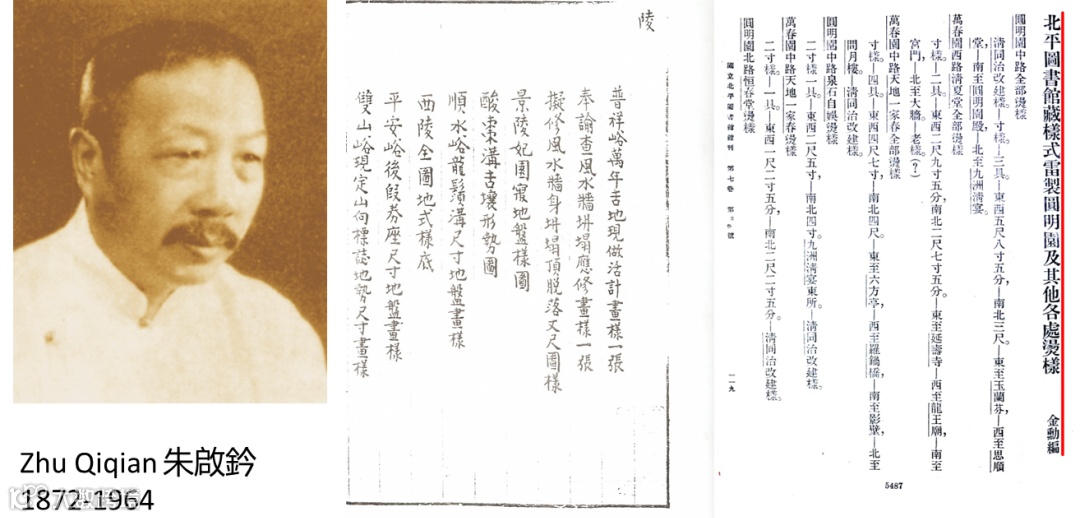 Zhu Qiqian 朱啟鈐
1872-1964
陵
普祥峪萬年吉地現做活計畫樣一張
奉諭查風水牆坍塌應修畫樣一張
擬修風水牆身坍塌頂脫落丈尺圖樣
景陵妃園寢地盤樣圖
酸棗溝吉壤形勢圖
順水峪龍鬚溝尺寸地盤畫樣
西陵全圖地式樣底
平安峪後段券座尺寸地盤畫樣
雙山峪現定山向標誌地勢尺寸畫樣
北平圖書館藏樣式雷製圓明園及其他各處燙樣
金勳編
圓明園中路全部燙樣
清同治改建樣。一寸樣。一三具。一東西五尺八寸五分,一南北三尺。一東至玉蘭芬,一西至思順
堂,一南至圓明園殿,一北至九洲清宴。
萬春園西路清夏堂全部燙樣
寸樣。一二具。一東西二尺九寸五分,南北二尺七寸五分。一東至延壽寺一西至龍王廟,一南至
宮門,一北至大牆。一老樣。(?)
萬春園中路天地一家春全部燙樣
寸樣。一四具。一東西四尺七寸,一南北四尺。一東至六方亭,一西至羅鍋橋,一南至影壁,一北至
問月樓。一清同治改建樣。
圓明園中路泉石自娛燙樣
二寸樣一具。一東西二尺五寸,一南北四寸。九洲清宴東所。一清同治改建樣。
萬春園中路天地一家春燙樣
二寸樣。一一具。一東西一尺二寸五分,一南北二尺二寸五分。一清同治改建樣。
圓明園北路恒春堂燙樣
國立北平圖書館館刊 第七卷
一一九
5487